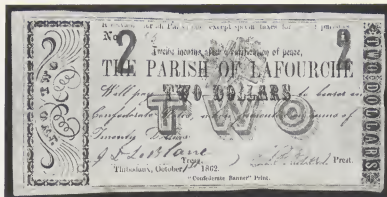 No
2
2
Twelve months after ratification of peace,
THE PARISH OF LAFOURCHE
Will pay TWO DOLLARS to bearer in
Confederate notes, in sums of
Twenty Dollars.
TWO
Treas. Prest.
Thibodaux, October 1862.
"Confederate Banner" Print.
TWO TWO
TWO DOLLARS